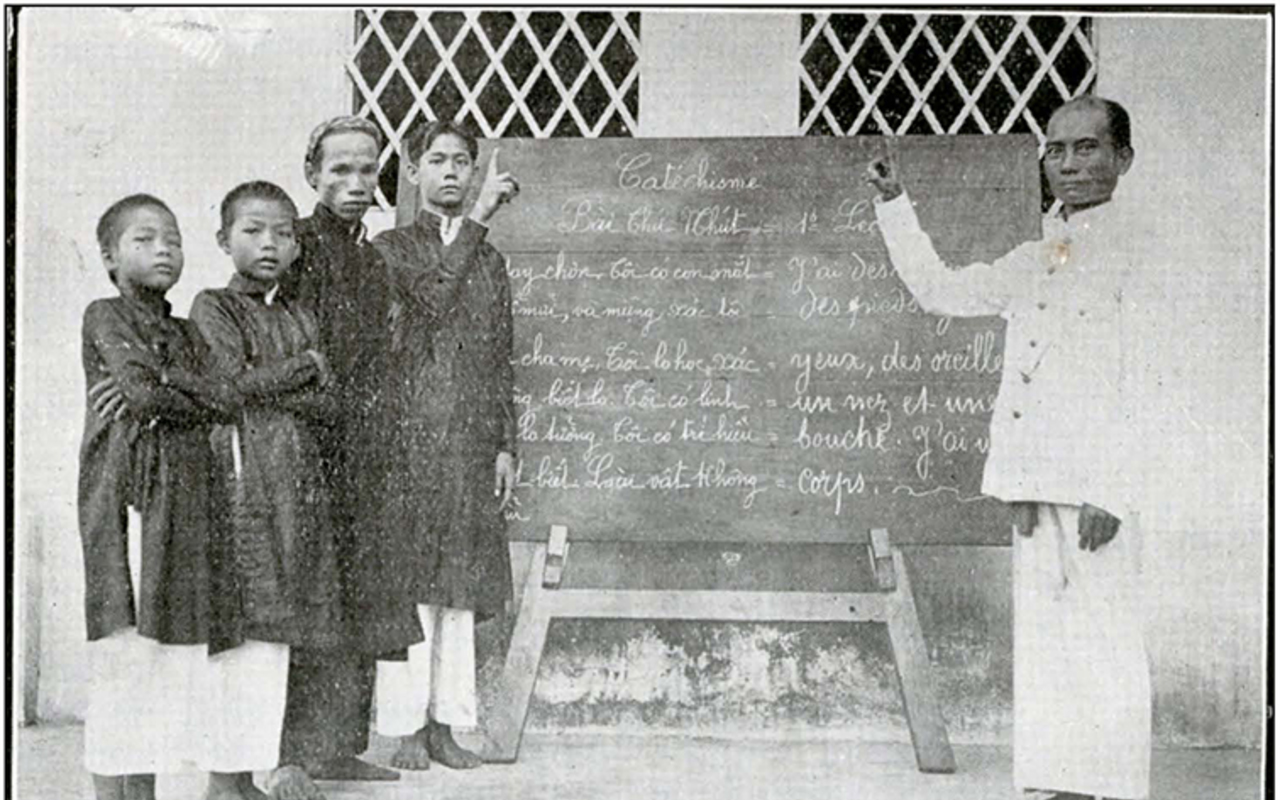 Catéchisme
Bài Thứ Nhứt = 1è Leç
tay chơn, Tôi có con mắt = J'ai des
mũi, và miệng, xác tôi = des pieds
cha mẹ, Tôi lo học, xác = yeux, des oreille
biết lo. Tôi có linh = un nez et une
lo tưởng, Tôi có trí hiểu = bouche. J'ai u
biết Loài vật Không = corps.